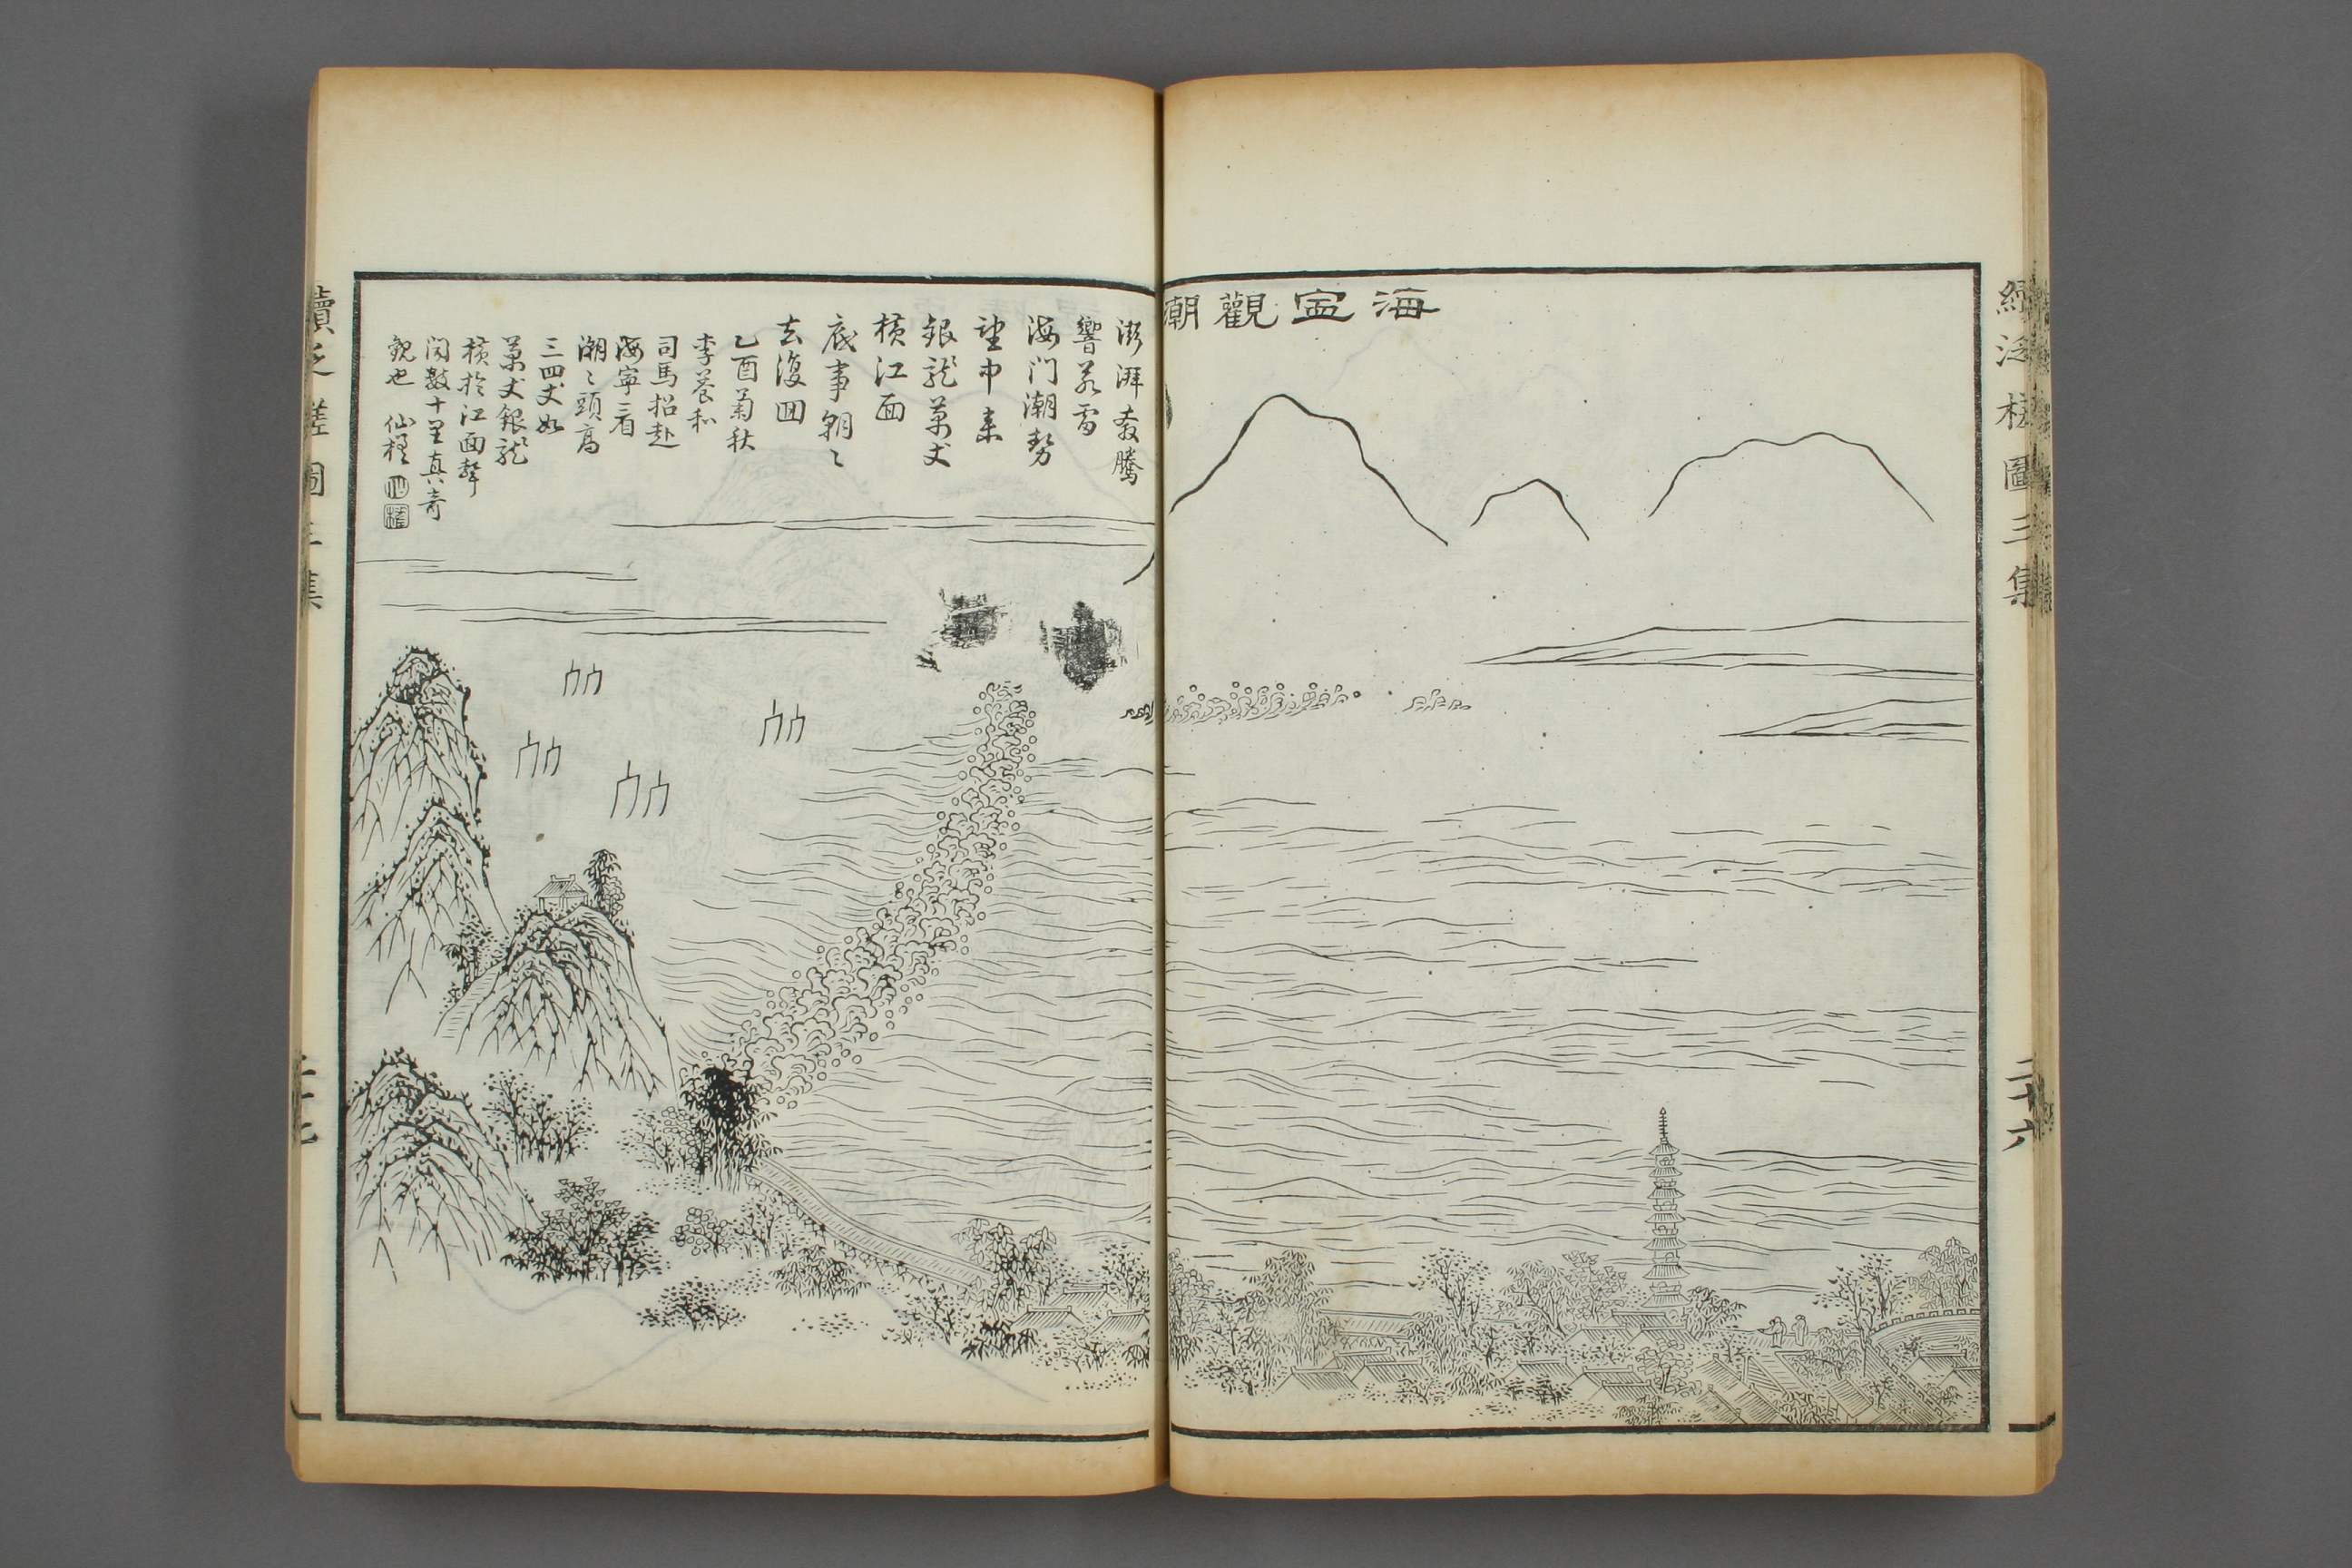 海寍觀潮
續泛槎圖三集
二十六
澎湃奔騰
響若雷
海门潮勢
望中来
銀龍萬丈
橫江面
底事朝〻
去復囬
乙酉菊秋
李養和
司馬招赴
海寧看
潮〻頭髙
三四丈如
萬丈銀龍
橫扵江面聲
闻數十里真竒
觀也 仙槎
續泛槎圖三集
二十七